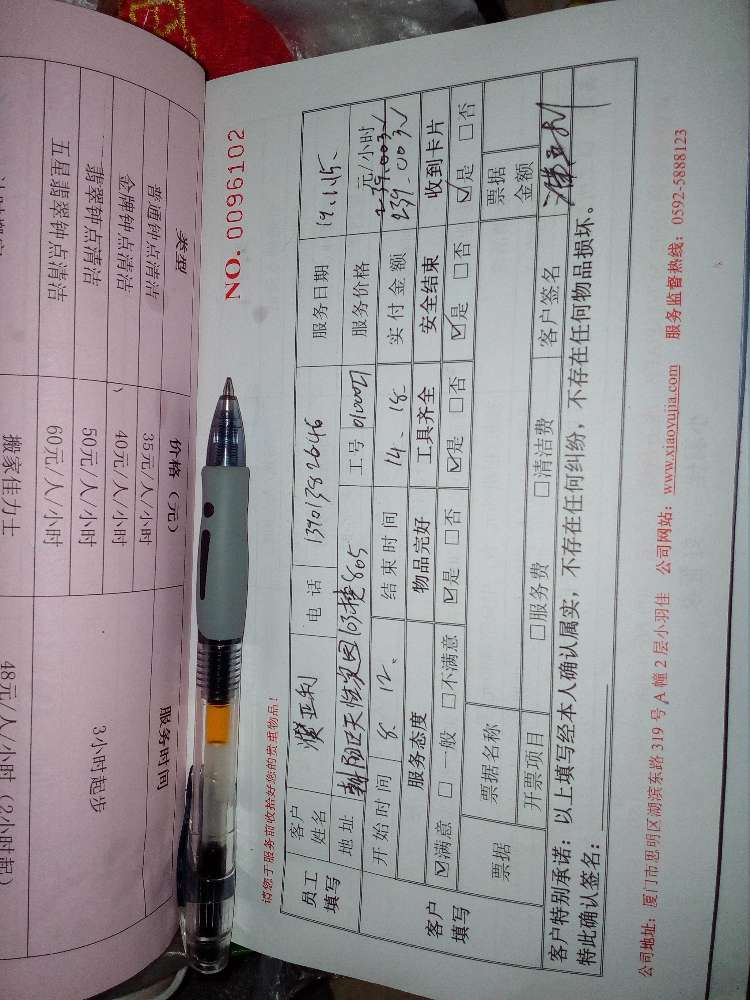 类型
价格（元）
服务时间
普通钟点清洁
35元/人/小时
3小时起步
金牌钟点清洁
40元/人/小时
翡翠钟点清洁
50元/人/小时
五星翡翠钟点清洁
60元/人/小时
搬家佳力士
48元/人/小时（2小时起）
请您于服务前收拾好您的贵重物品！
NO. 0096102
员工填写
客户姓名
濮亚利
电话
13901382646
服务日期
19.1.15.
地址
朝阳区天恒家园103楼805
工号
010027
服务价格
元/小时
开始时间
8.12.
结束时间
14.18
实付金额
239.003
客户填写
服务态度
物品完好
工具齐全
安全结束
收到卡片
☑满意 □一般 □不满意
☑是 □否
☑是 □否
☑是 □否
☑是 □否
票据
票据名称
票据金额
开票项目
□服务费 □清洁费
客户签名
濮亚利
客户特别承诺：以上填写经本人确认属实，不存在任何纠纷，不存在任何物品损坏。
特此确认签名：
公司地址：厦门市思明区湖滨东路 319 号 A 幢 2 层小羽佳 公司网站：www.xiaoyujia.com 服务监督热线：0592-5888123